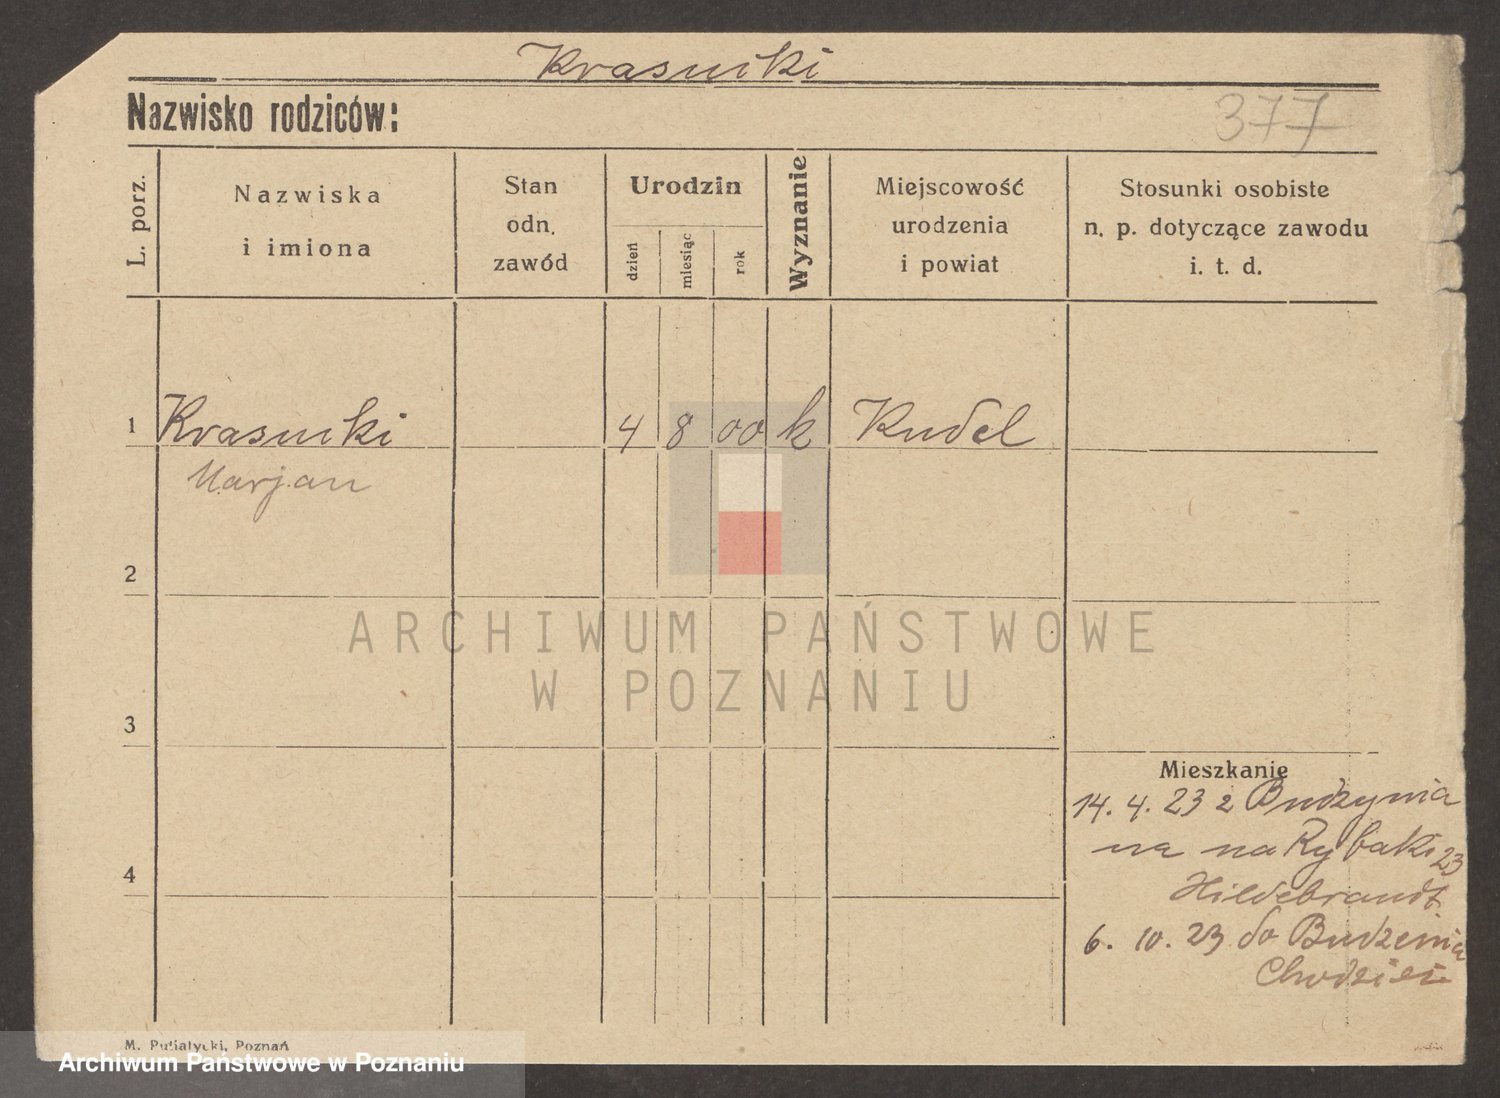 Krasnicki
Nazwisko rodziców:
377
L. porz.
Nazwiska
i imiona
Stan
odn.
zawód
Urodzin
dzień
miesiąc
rok
Wyznanie
Miejscowość
urodzenia
i powiat
Stosunki osobiste
n. p. dotyczące zawodu
i. t. d.
1 Krasnicki 4 8 00 k Kudel
Marjan
2
3
4
Mieszkanie
14. 4. 23 z Budzynia
na na Rybaki 23
Hildebrandt.
6. 10. 23 do Budzenia
Chodzież
ARCHIWUM PAŃSTWOWE
W POZNANIU
M. Putiatycki, Poznań
Archiwum Państwowe w Poznaniu